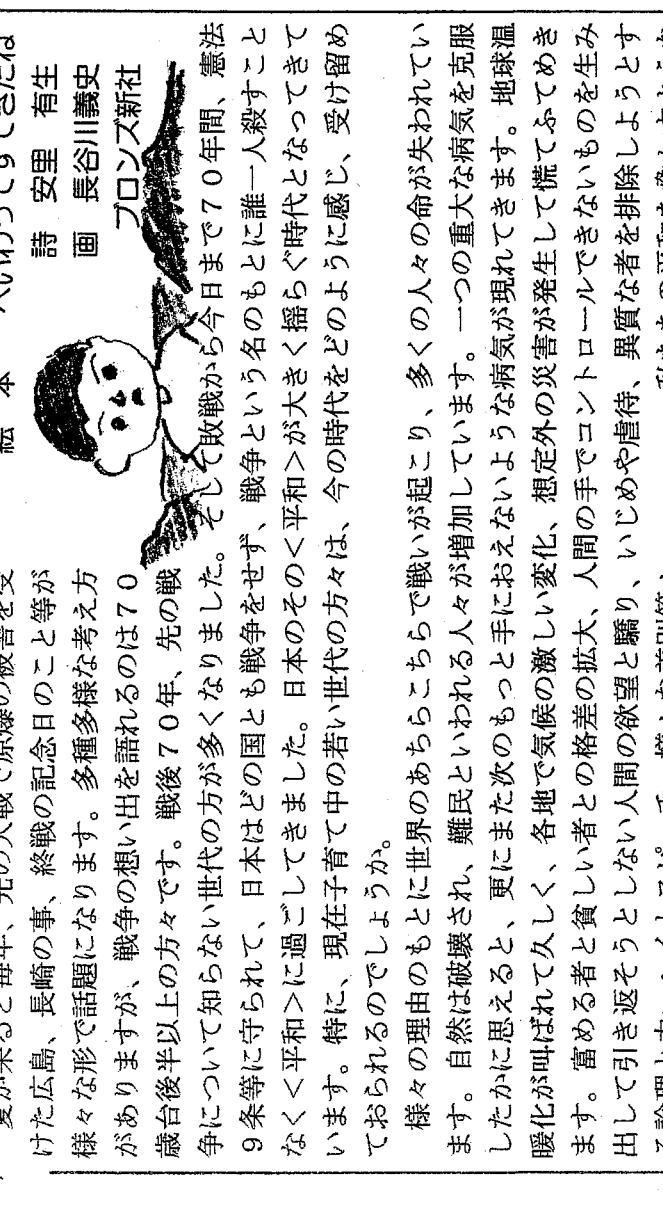 絵本 へいわってすてきだね
詩 安里 有生
画 長谷川義史
ブロンズ新社
夏が来ると毎年、先の大戦で原爆の被害を受
けた広島、長崎の事、終戦の記念日のこと等が
様々な形で話題になります。多種多様な考え方
がありますが、戦争の想い出を語れるのは70
歳台後半以上の方々です。戦後70年、先の戦
争について知らない世代の方が多くなりました。そして敗戦から今日まで70年間、憲法
9条等に守られて、日本はどの国とも戦争をせず、戦争という名のもとに誰一人殺すこと
なく<平和>に過ごしてきました。日本のその<平和>が大きく揺らぐ時代となってきて
います。特に、現在子育て中の若い世代の方々は、今の時代をどのように感じ、受け留め
ておられるのでしょうか。
様々の理由のもとに世界のあちらこちらで戦いが起こり、多くの人々の命が失われてい
ます。自然は破壊され、難民といわれる人々が増加しています。一つの重大な病気を克服
したかに思えると、更にまた次のもっと手におえないような病気が現れてきます。地球温
暖化が叫ばれて久しく、各地で気候の激しい変化、想定外の災害が発生して慌てふためき
ます。富める者と貧しい者との格差の拡大、人間の手でコントロールできないものを生み
出して引き返そうとしない人間の欲望と驕り、いじめや虐待、異質な者を排除しようとす